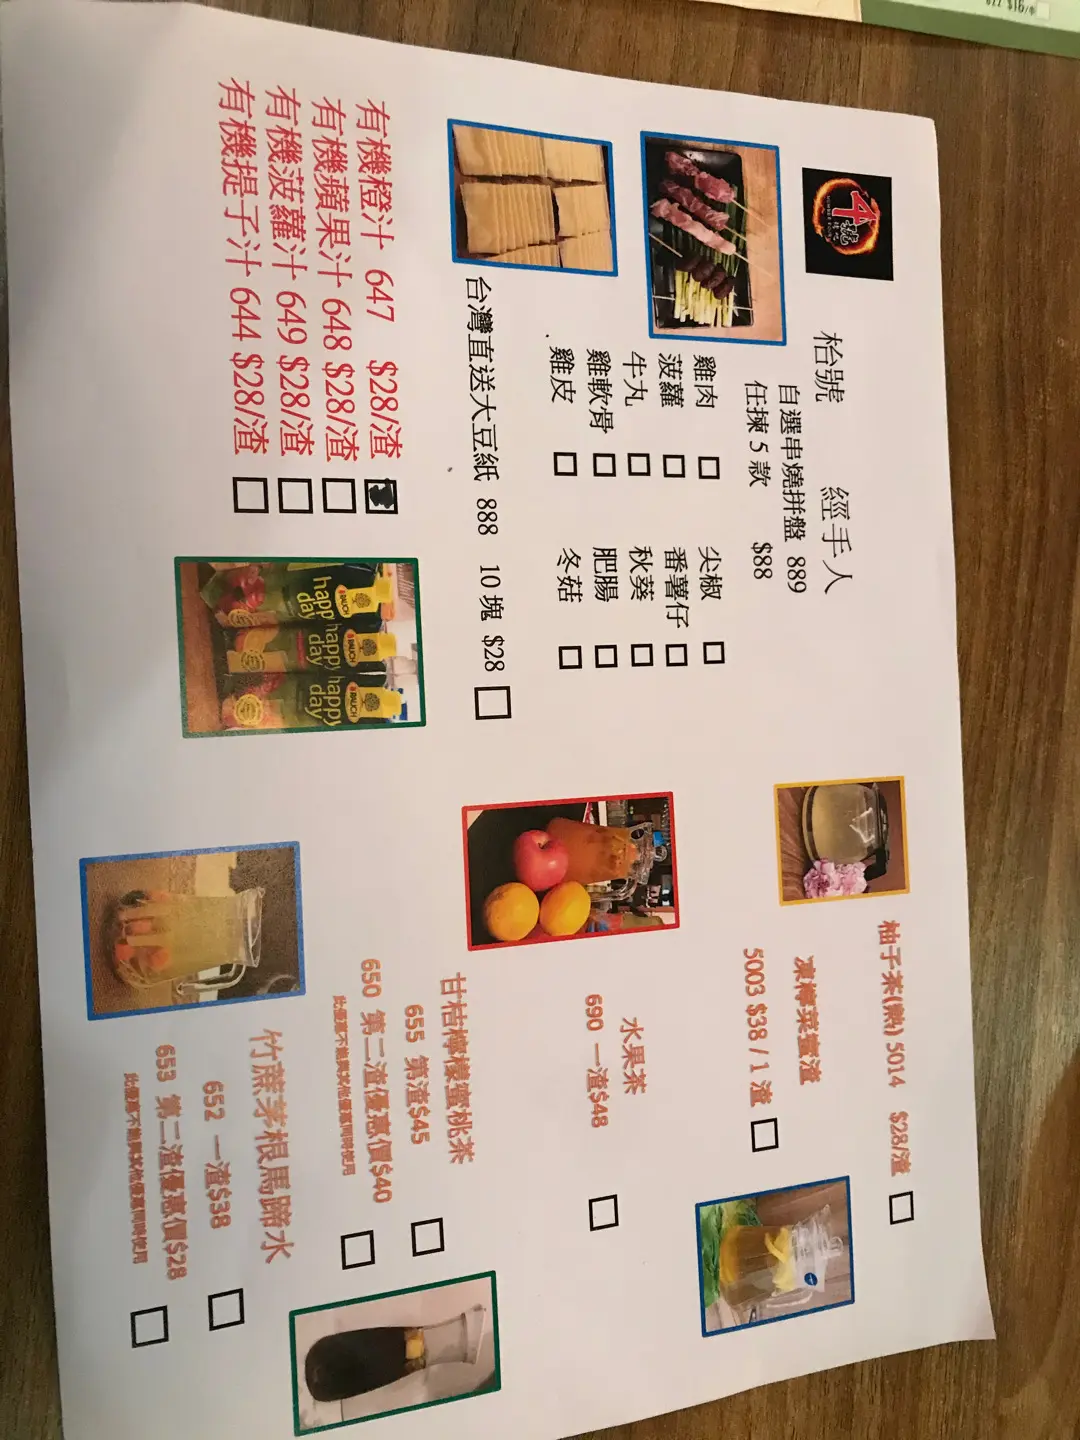 4號
枱號 經手人
自選串燒拼盤 889
任揀 5 款 $88
雞肉 尖椒
菠蘿 番薯仔
牛丸 秋葵
雞軟骨 肥腸
雞皮 冬菇
台灣直送大豆紙 888 10 塊 $28
有機橙汁 647 $28/渣
有機蘋果汁 648 $28/渣
有機菠蘿汁 649 $28/渣
有機提子汁 644 $28/渣
RAUCH
happy
day
RAUCH
happy
day
RAUCH
happy
day
柚子茶(熱) 5014 $28/渣
凍檸菜蜜渣
5003 $38 / 1 渣
水果茶
690 一渣$48
甘桔檸檬蜜桃茶
655 第渣$45
650 第二渣優惠價$40
此優惠不能與其他優惠同時使用
竹蔗茅根馬蹄水
652 一渣$38
653 第二渣優惠價$28
此優惠不能與其他優惠同時使用